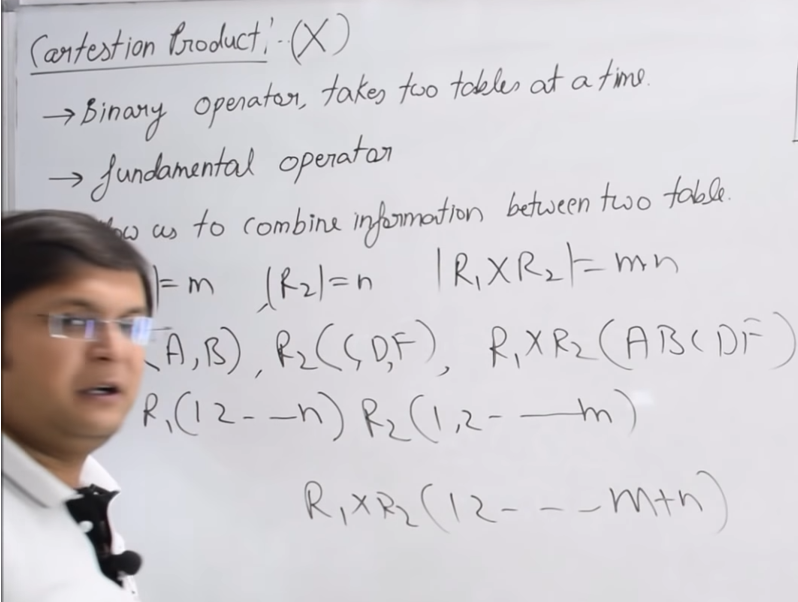 Cartestion Product:- (X)
→ Binary operator, takes two tables at a time.
→ fundamental operator
us to combine information between two table.
|= m |R₂|= n |R₁XR₂|= mn
(A,B), R₂(C,D,F), R₁XR₂(ABCDF)
R₁(12- -- n) R₂(1,2- —— m)
R₁XR₂(12- - - - m+n)